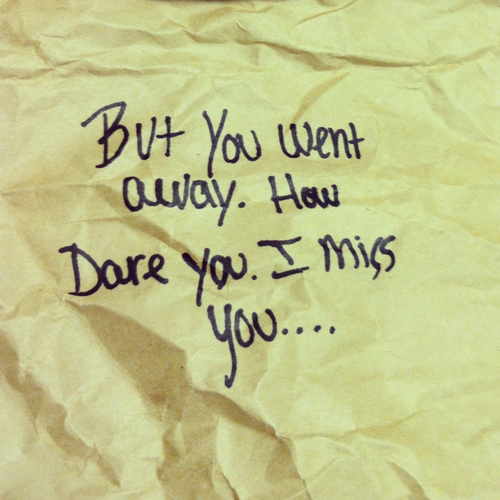 But You Went
away. How
Dare you. I Miss
you....